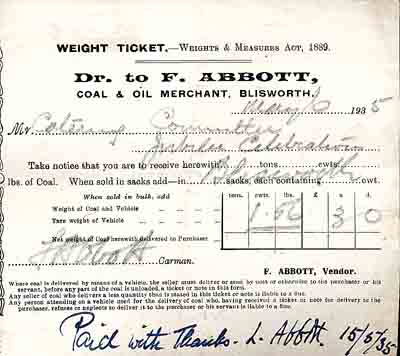 WEIGHT TICKET.—WEIGHTS & MEASURES ACT, 1889.
Dr. to F. ABBOTT,
COAL & OIL MERCHANT, BLISWORTH.
May 6 1935
Mr. Catering Committee
Jubilee Celebration
Take notice that you are to receive herewith tons cwts.
lbs. of Coal. When sold in sacks add—in Blisworth sacks, each containing cwt.
When sold in bulk, add
tons. cwts. lbs. £ s. d.
Weight of Coal and Vehicle
Tare weight of Vehicle
3 0
Net weight of Coal herewith delivered to Purchaser
Abbott Carman.
F. ABBOTT, Vendor.
Where coal is delivered by means of a vehicle, the seller must deliver or send by post or otherwise to the purchaser or his
servant, before any part of the coal is unloaded, a ticket or note in this form.
Any seller of coal who delivers a less quantity than is stated in this ticket or note is liable to a fine.
Any person attending on a vehicle used for the delivery of coal who, having received a ticket or note for delivery to the
purchaser, refuses or neglects to deliver it to the purchaser or his servant is liable to a fine.
Paid with Thanks. L. Abbott. 15/5/35